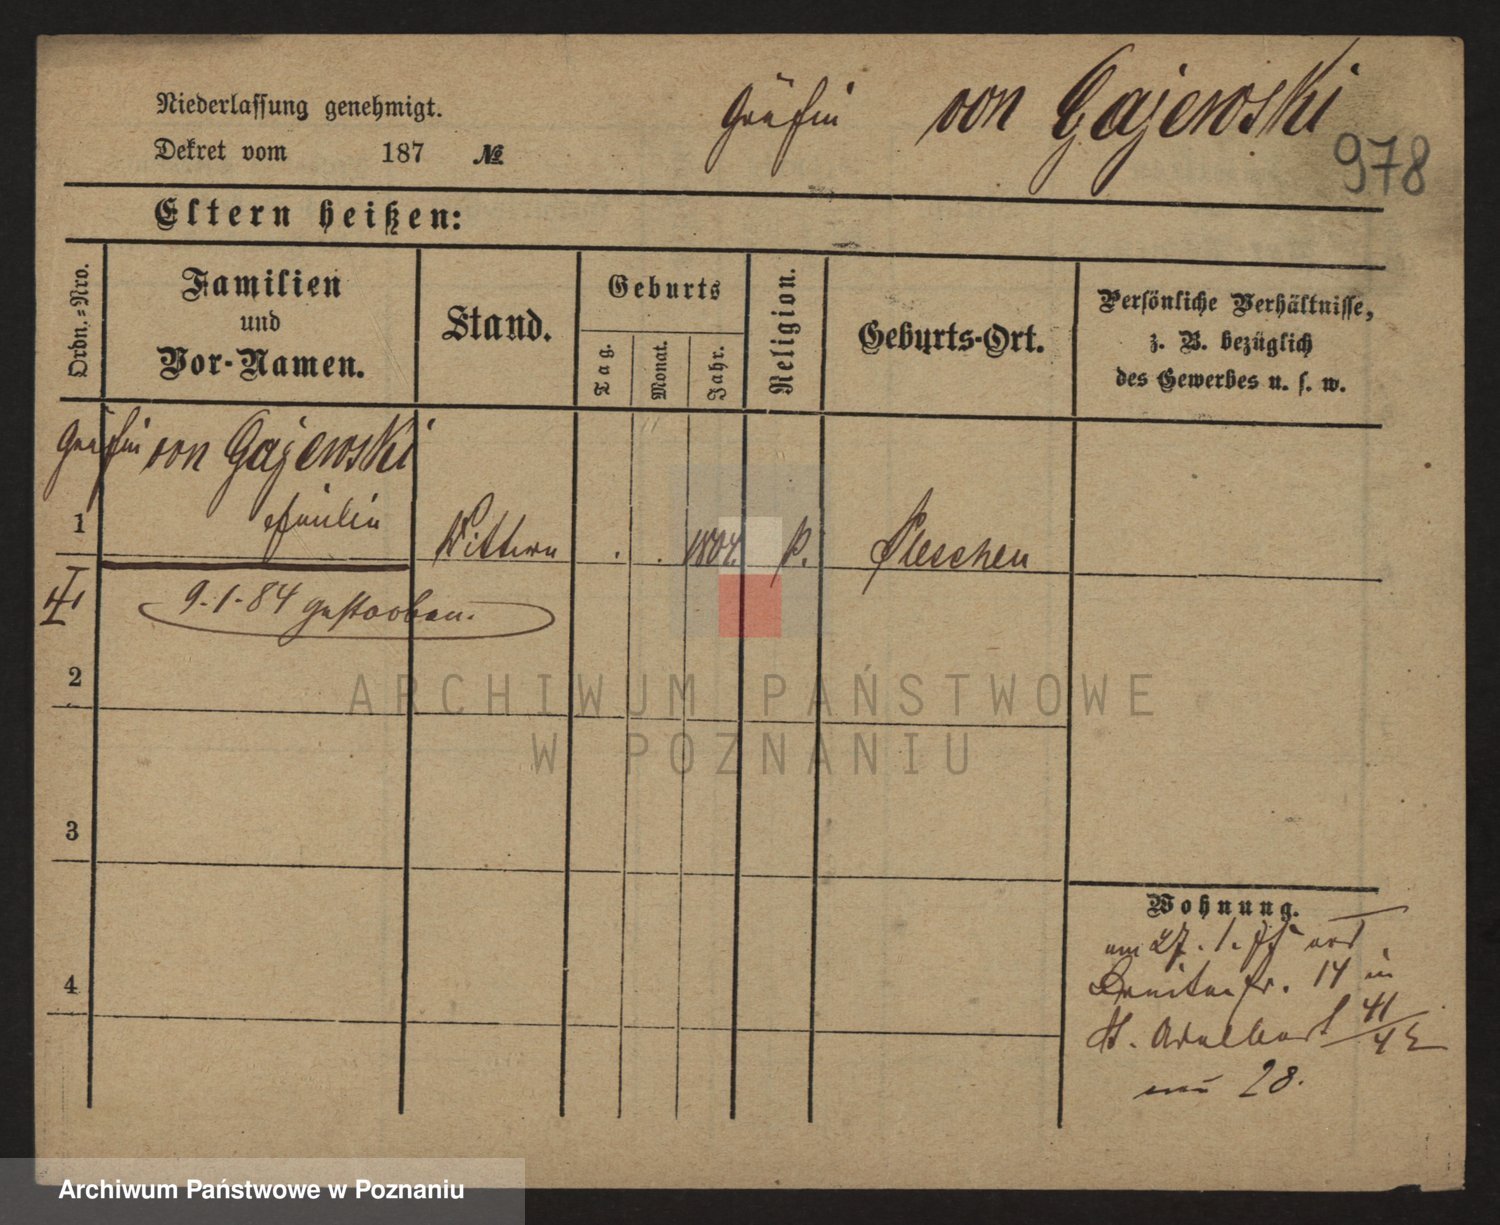 Niederlassung genehmigt.
Dekret vom 187 №
Gräfin von Gajewski
978
Eltern heißen:
Ordn.-Nro.
Familien
und
Vor-Namen.
Stand.
Geburts
Tag.
Monat.
Jahr.
Religion.
Geburts-Ort.
Persönliche Verhältnisse,
z. B. bezüglich
des Gewerbes u. s. w.
Gräfin von Gajewski
1
Wittwe
1804
k.
Pleschen
9.1.84 gestorben.
2
ARCHIWUM PAŃSTWOWE
W POZNANIU
3
4
Wohnung.
am 27. 1.
14 in
St. Adalbert 41/42
nu 28.
Archiwum Państwowe w Poznaniu